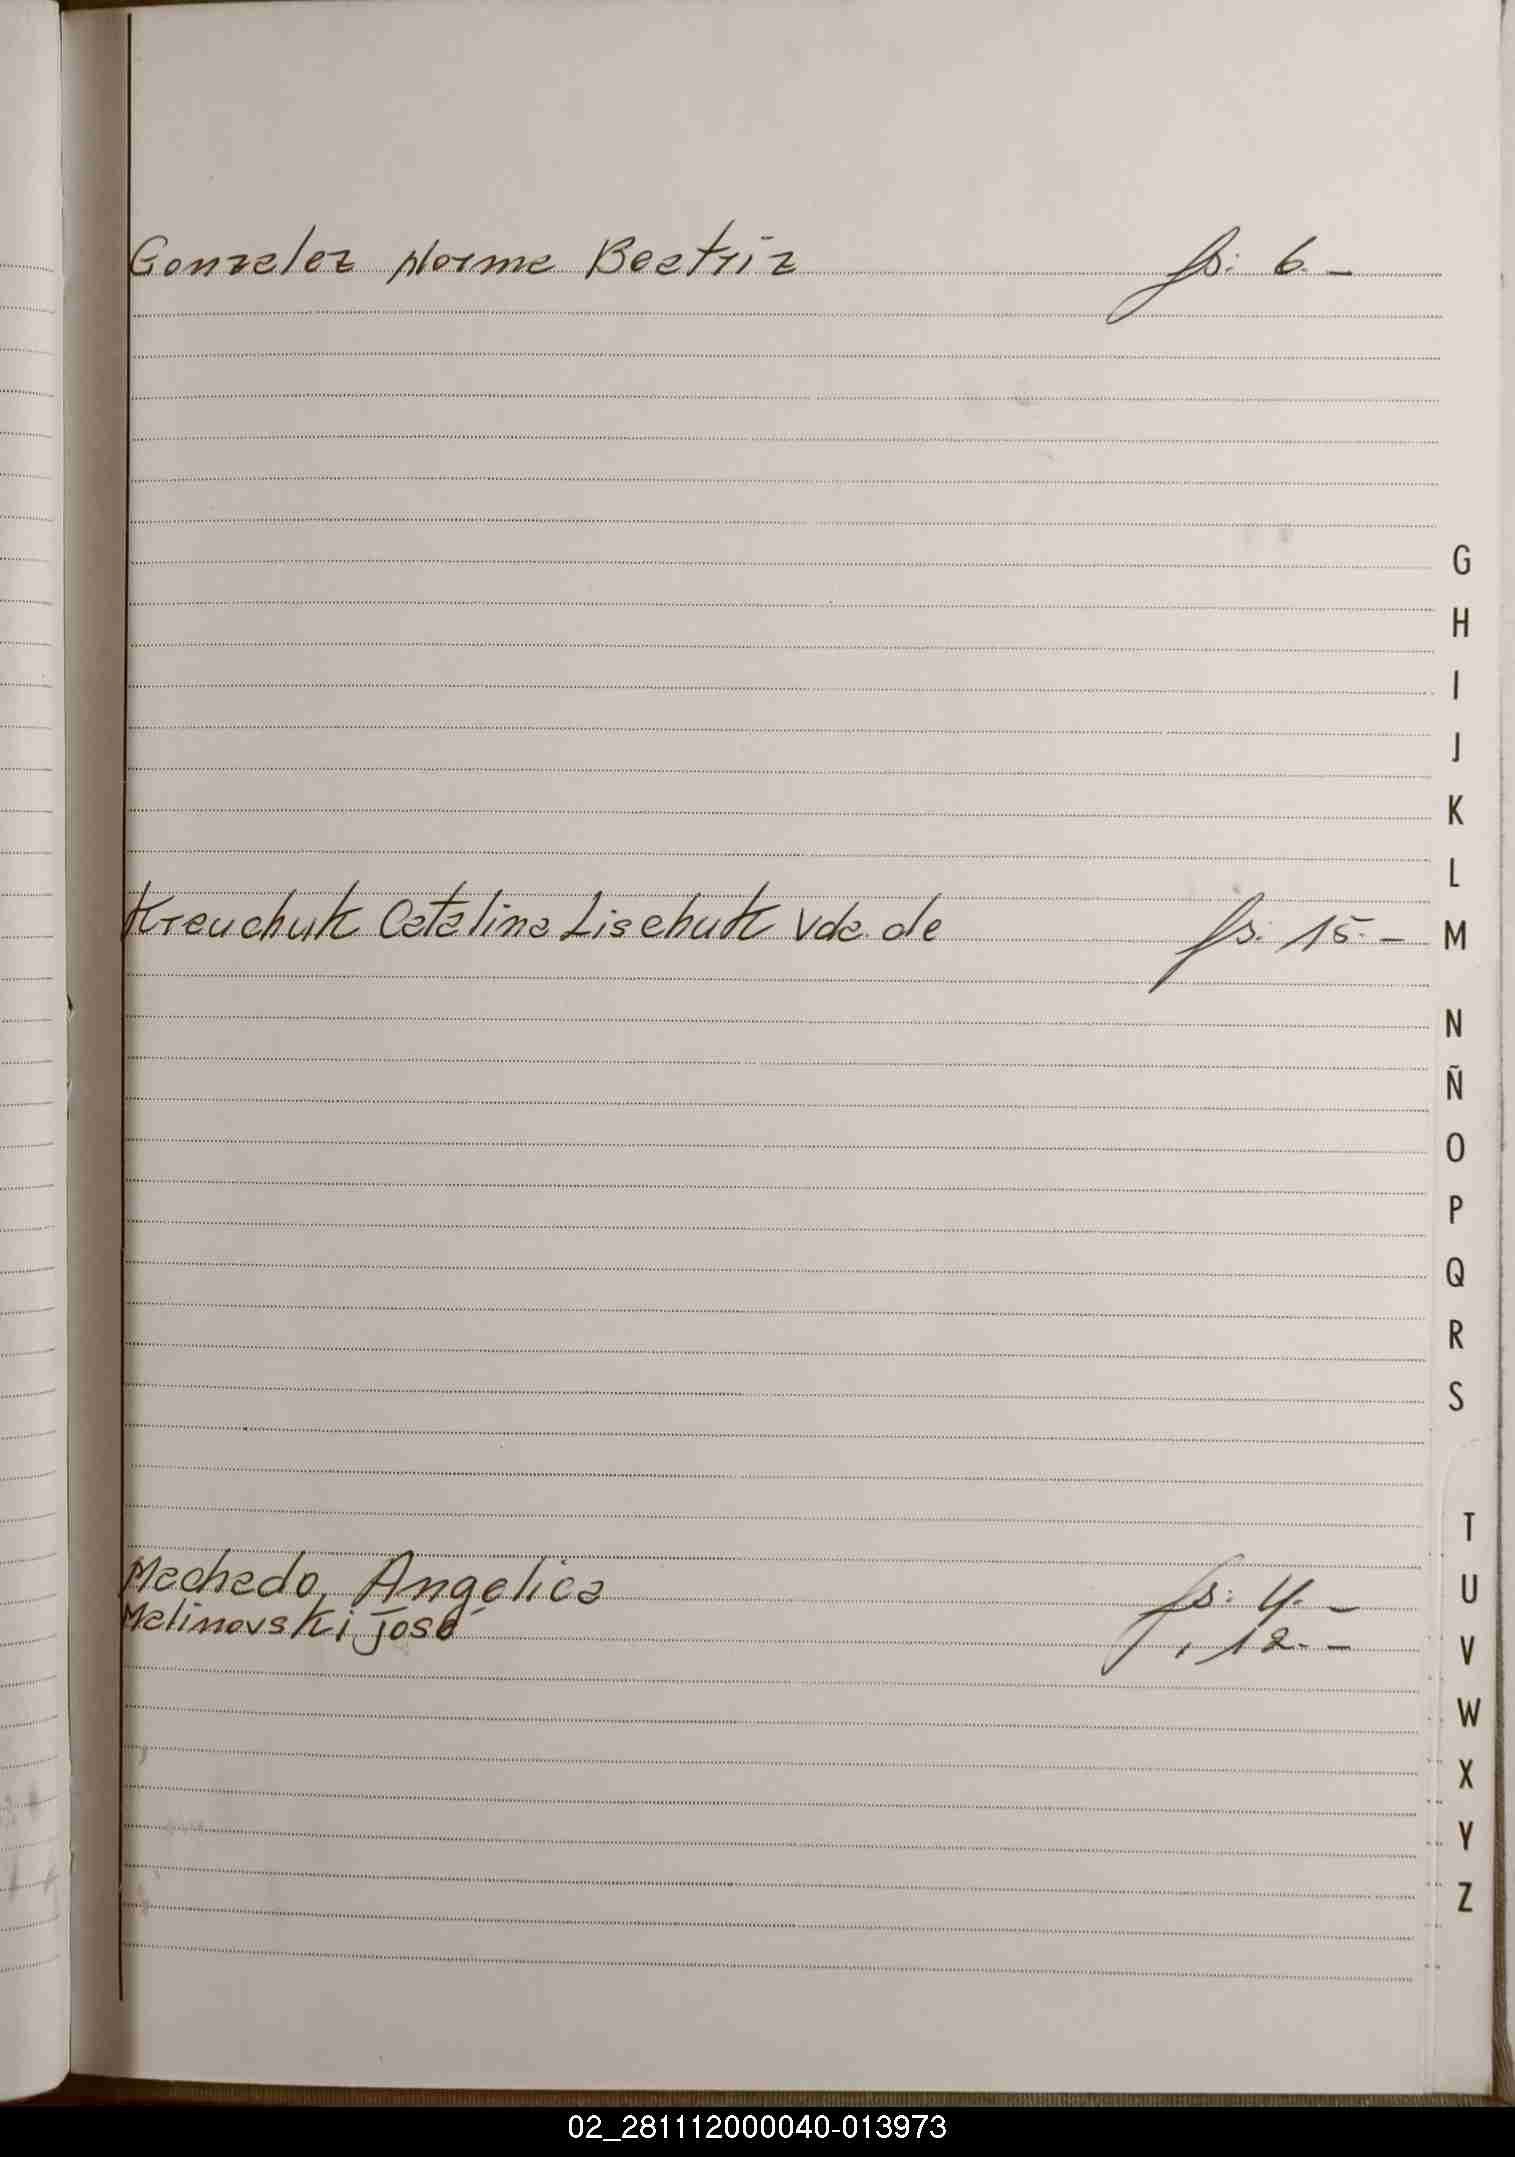 Gonzalez Norma Beatriz fs: 6.-
Krauchuk Catalina Lischuk Vda. de fs: 15.-
Machado, Angélica fs: 4.-
Malinovski José , 12.-
G
H
I
J
K
L
M
N
Ñ
O
P
Q
R
S
T
U
V
W
X
Y
Z
02_281112000040-013973